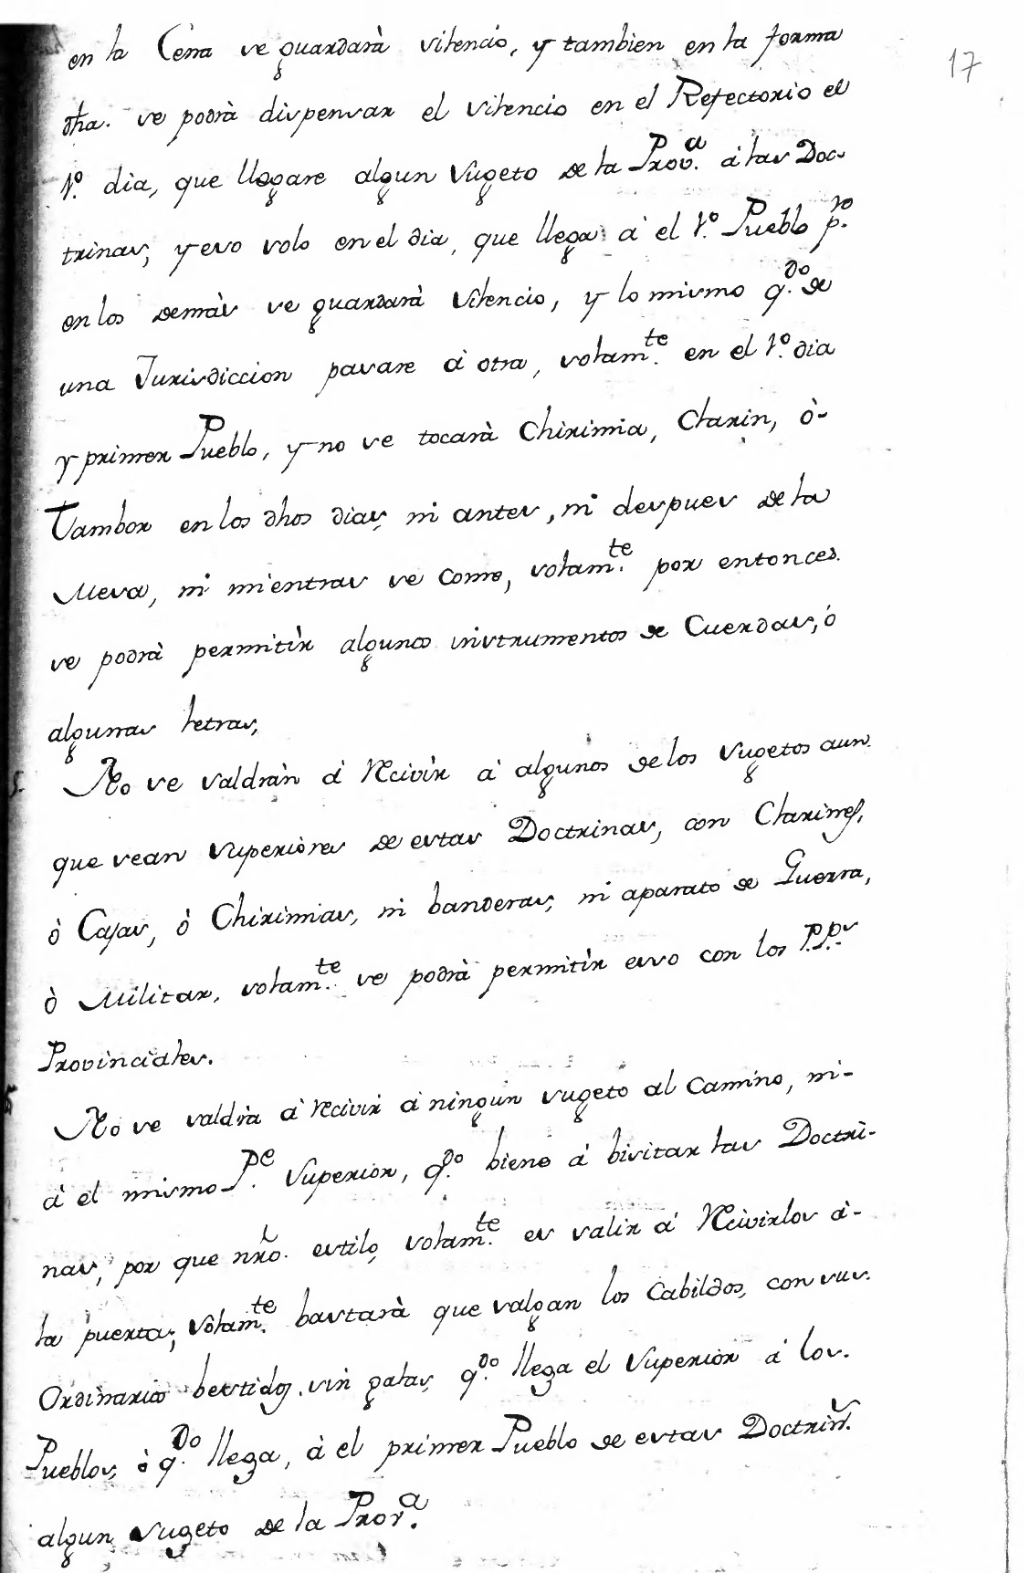 17
en la Cena se guardarà silencio, y tambien en la forma
dha. se podrà dispensar el silencio en el Refectorio el
1º. dia, que llegare algun sugeto de la Provª. à las Doc-
trinas, y eso solo en el dia, que llega à el 1º. Pueblo pº.
en los demàs se guardarà silencio, y lo mismo qdo. de
una Jurisdiccion pasare à otra, solamte. en el 1º. dia
y primer Pueblo, y no se tocarà Chirimia, Clarin, ò-
Tambor en los dhos dias, ni antes, ni despues de la
Mesa, ni mientras se come, solamte. por entonces
se podrà permitir algunos instrumentos de Cuerdas, ò
algunas letras,
No se saldràn à recivir à algunos de los sugetos aun-
que sean superiores de estas Doctrinas, con Clarines,
ò Cajas, ò Chirimias, ni banderas, ni aparato de Guerra,
ò Militar, solamte. se podrà permitir esso con los P.Ps.
Provinciales.
No se saldrà à recivir à ningun sugeto al camino, ni-
à el mismo Pe. Superior, qdo. biene à bisitar las Doctri-
nas, por que nro. estilo, solamte. es salir à recivirlos à-
la puerta, solamte. bastarà que salgan los Cabildos, con sus
Ordinarios bestidos, sin galas, qdo. llega el Superior à los
Pueblos, ò qdo. llega, à el primer Pueblo de estas Doctrins.
algun sugeto de la Prova.